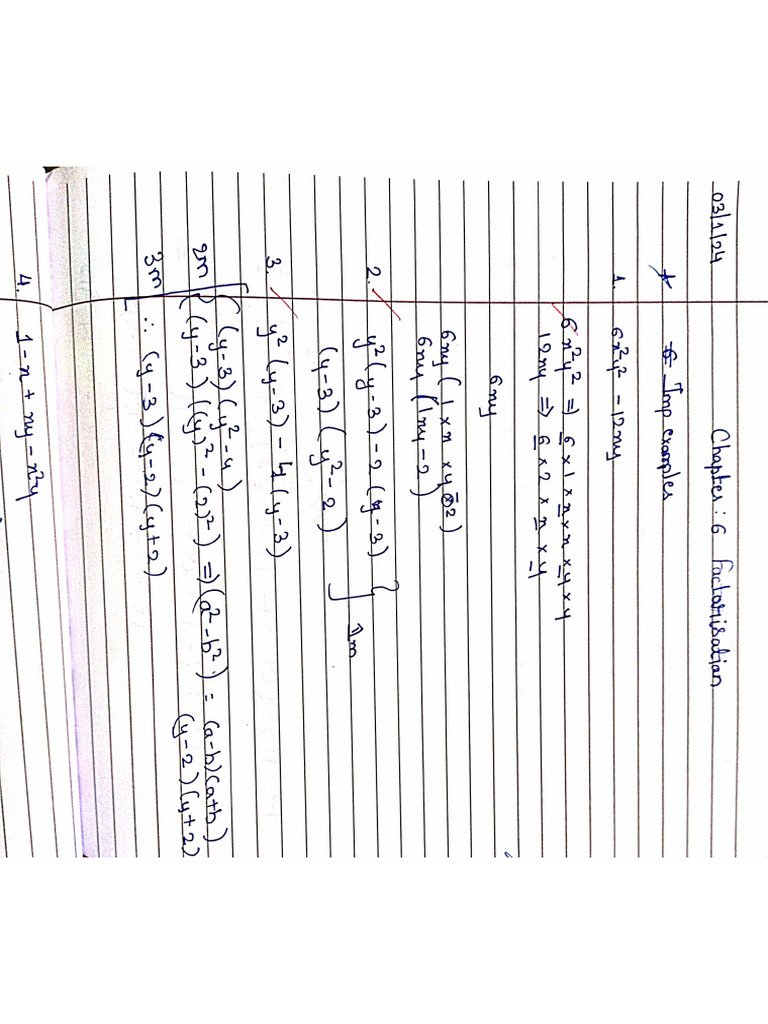 03/1/24
Chapter : 6 Factorisation
* Imp examples
1. 6x²y² - 12xy
6x²y² ⇒ 6 × 1 × x × x × y × y
12xy ⇒ 6 × 2 × x × y
6xy
6xy ( 1 × x × y - 2 )
6xy ( 1xy - 2 )
2. y² (y - 3) - 2 (y - 3)
(y - 3) ( y² - 2 ) 1m
3. y² (y - 3) - 4 (y - 3)
(y - 3) ( y² - 4 )
2m (y - 3) ( (y)² - (2)² ) ⇒ ( a² - b² ) = (a - b) (a + b)
(y - 2) (y + 2)
3m ∴ (y - 3) (y - 2) (y + 2)
4. 1 - x + xy - x²y